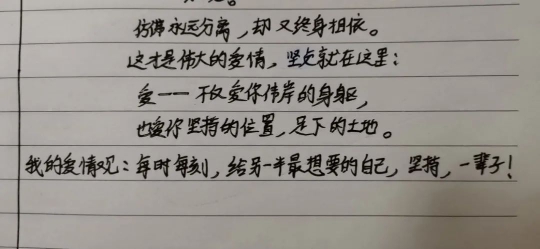 仿佛永远分离，却又终身相依。
这才是伟大的爱情，坚贞就在这里：
爱——不仅爱你伟岸的身躯，
也爱你坚持的位置，足下的土地。
我的爱情观：每时每刻，给另一半最想要的自己，坚持，一辈子！